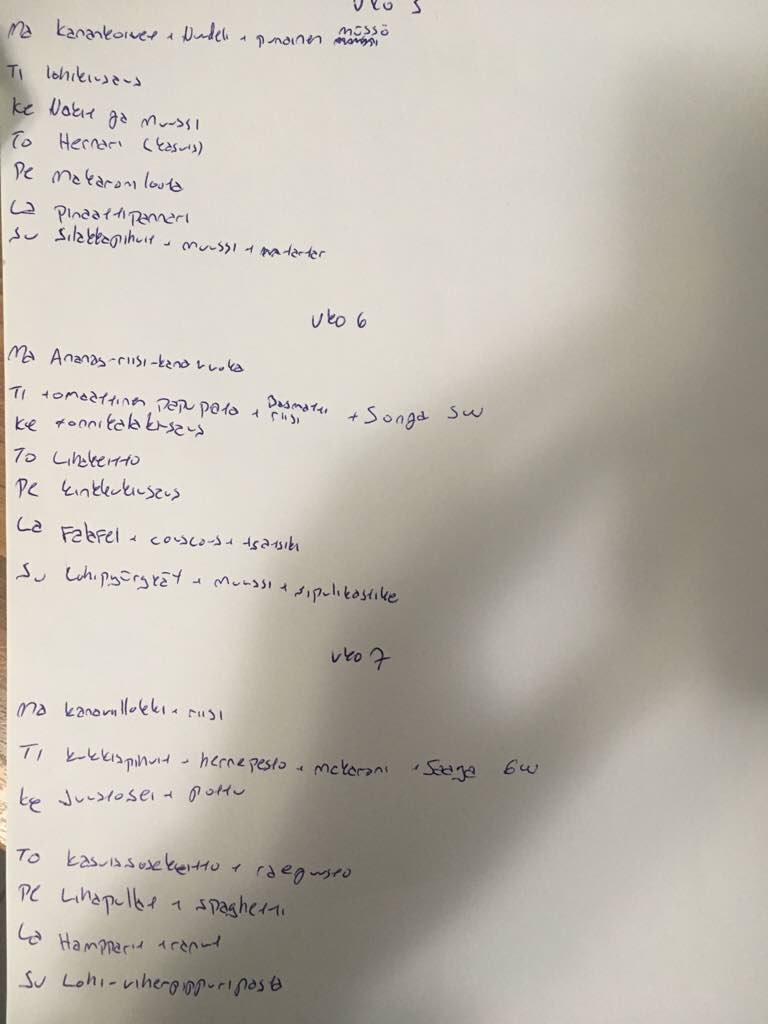 vko 5
Ma kanankoivet + Nudeli + punainen mössö
Ti lohikiusaus
Ke Nakit ja muussi
To Hernari (kasvis)
Pe Makaroni louta
La pinaattipannari
Su Silakkapihvit + muussi +
vko 6
Ma Ananas-riisi-kana vuoka
Ti tomaattinen papupata + Basmati riisi + Sonja SW
Ke tonnikalakiusaus
To Lihakeitto
Pe kinkkukiusaus
La Falafel + couscous + tsatsiki
Su Lohipyörykät + muussi + sipulikastike
vko 7
Ma kanaviillokki + riisi
Ti kukkispihvit + hernepesto + makaroni + Saaga 6w
Ke Juustosei + pottu
To kasvissosekeitto + raejuusto
Pe Lihapullat + spaghetti
La Hampparit + ranut
Su Lohi-vihergippuripasta